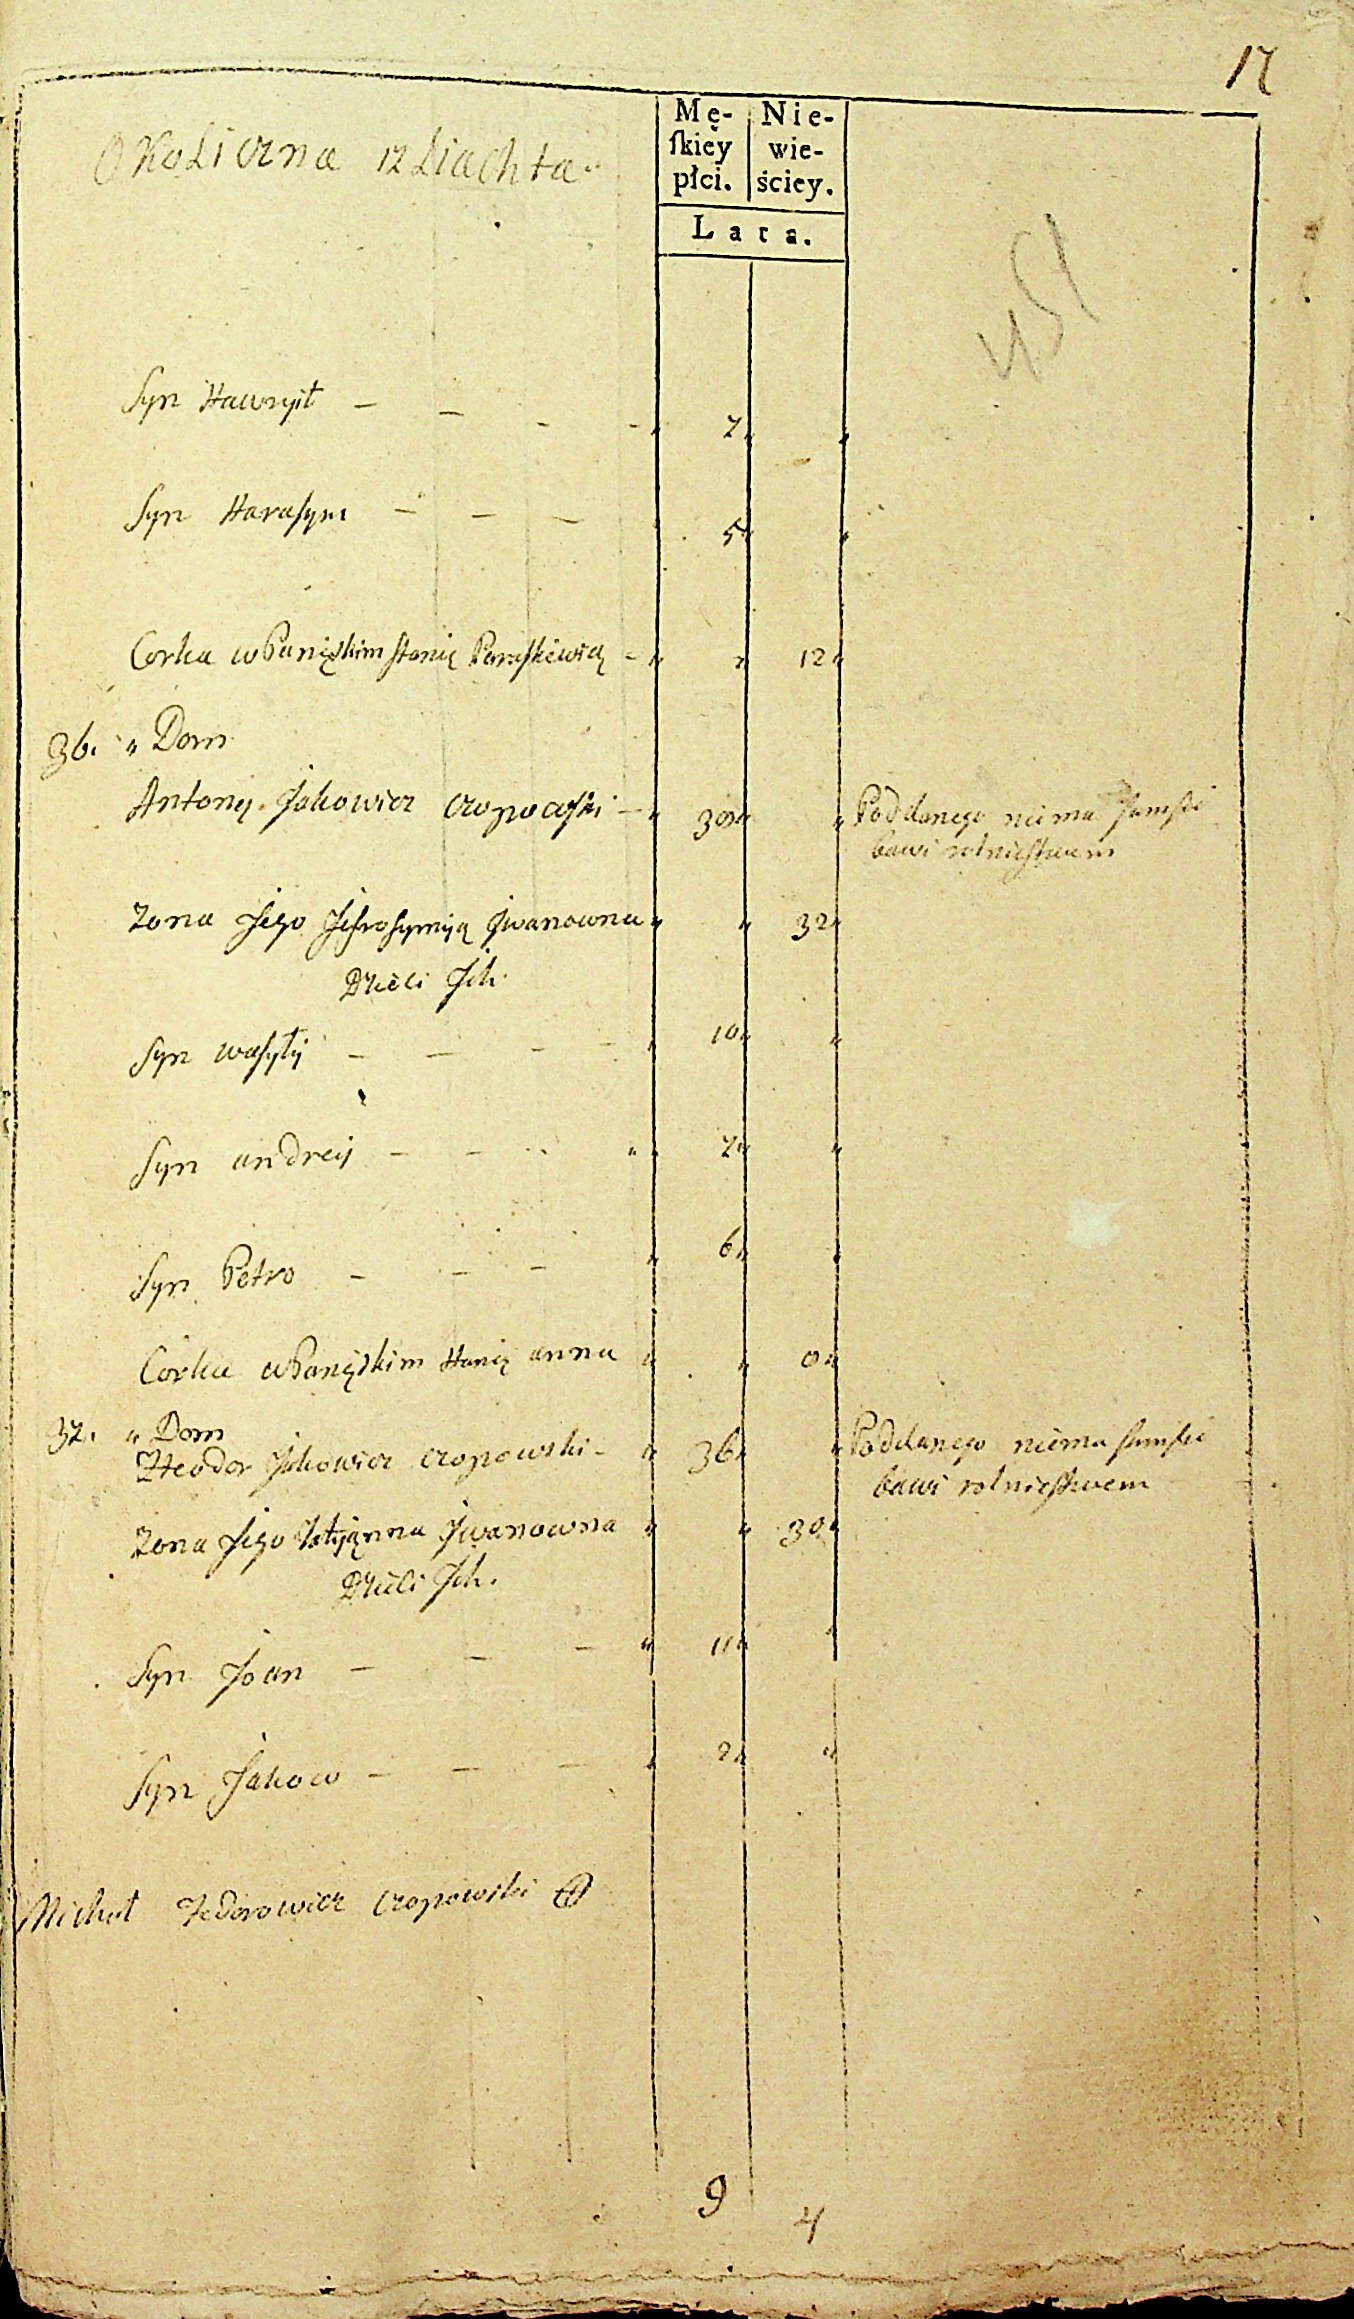 17
Okoliczna izliachta
Mę-
ſkiey
płci.
Nie-
wie-
ściey.
Lata.
Syn Hawryił 7
Syn Haraſym 5
Corka wPanięſkim ſtanię Paraſkiewią 12
36. Dom
Antonij Jakowicz Czopowſki 39 Poddanego niema ſamſię
bawi rolnieſtwem
Zona Jego Jefroſymiją Jwanowna 32
Dzieći Jch
Syn waſylij 10
Syn andreij 7
Syn Petro 6
Córka wPanięſkim ſtanię anna 0
37. Dom
Fteodor Jakowicz Czopowski 36 Poddanego niema ſamſię
bawi rolnieſtwem
Zona Jego Jwanowna 30
Dzieći Jch.
Syn Joan 11
Syn Jakow 2
Michał Fedorowicz Czopowski
9 4